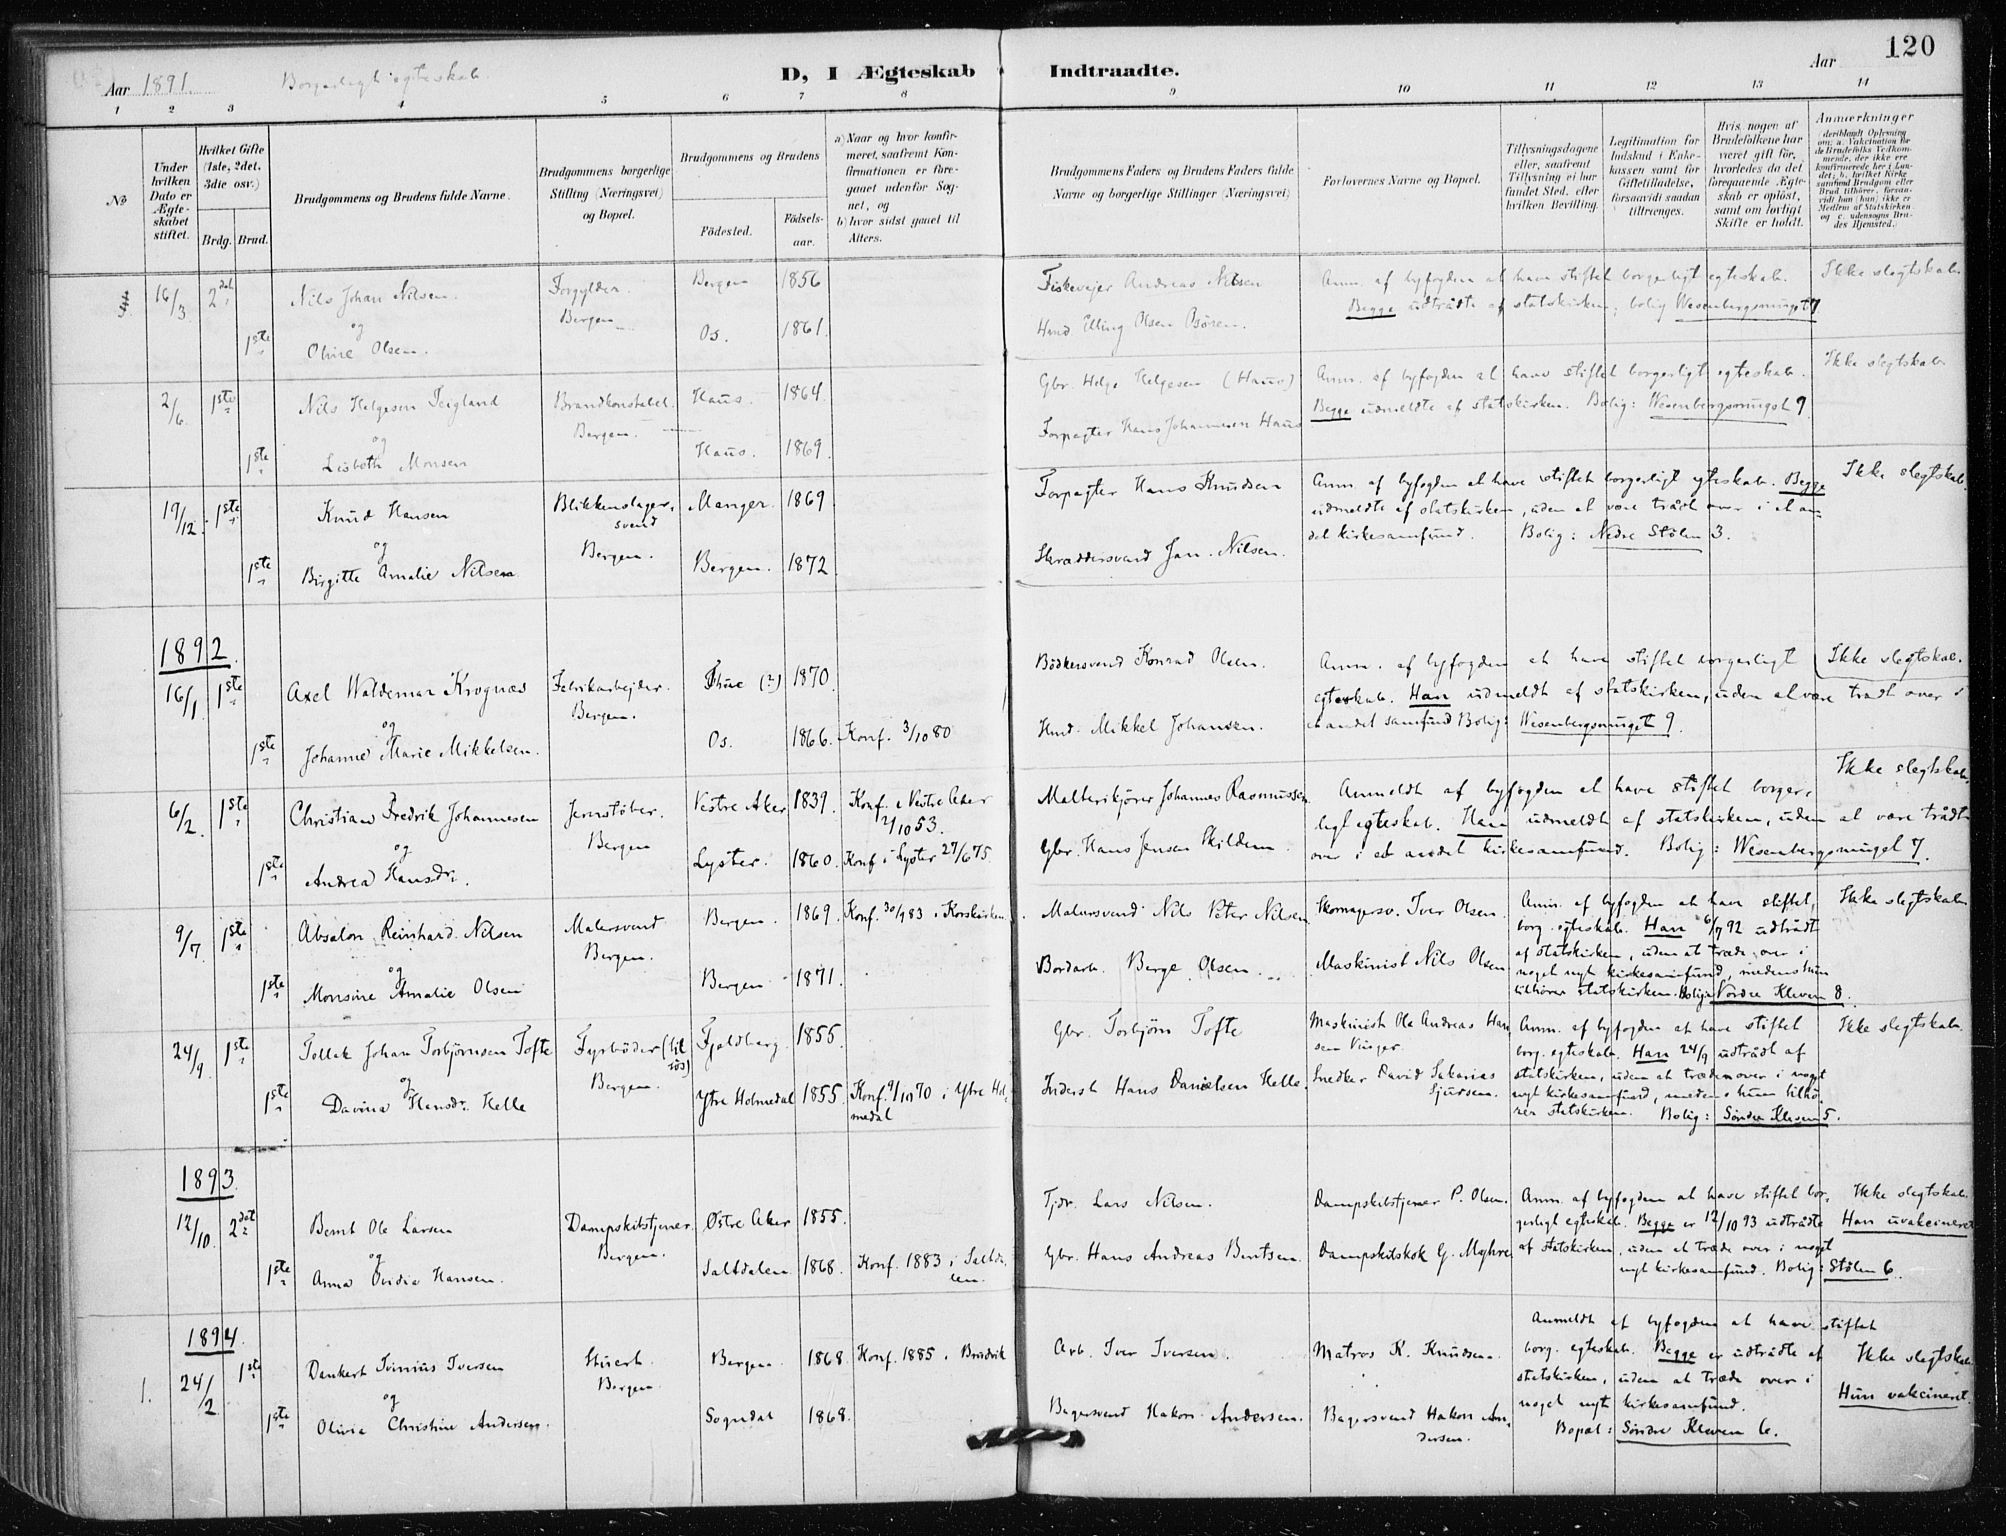 120
Aar 1891. Borgerligt egteskab. D, I Ægteskab Indtraadte. Aar
1 2 3 4 5 6 7 8 9 10 11 12 13 14
No
Under hvilken Dato er Ægteskabet stiftet.
Hvilket Gifte (1ste, 2det, 3die osv.)
Brdg. Brud.
Brudgommens og Brudens fulde Navne.
Brudgommens borgerlige Stilling (Næringsvei) og Bopæl.
Brudgommens og Brudens
Fødested.
Fødselsaar.
a) Naar og hvor konfirmeret, saafremt Konfirmationen er foregaaet udenfor Sognet, og
b) hvor sidst gaaet til Alters.
Brudgommens Faders og Brudens Faders fulde Navne og borgerlige Stillinger (Næringsvei)
Forlovernes Navne og Bopæl.
Tillysningsdagene eller, saafremt Tillysning ei har fundet Sted, efter hvilken Bevilling.
Legitimation for Indskud i Enkekassen samt for Giftetilladelse, forsaavidt saadan tiltrænges.
Hvis nogen af Brudefolkene har været gift før, hvorledes da det foregaaende Ægteskab er opløst, samt om lovligt Skifte er holdt.
Anmærkninger
deriblandt Oplysning om: a. Vakcination for de Brudefolks Vedkommende, der ikke ere konfirmerede her i Landet; b. hvilket Kirkesamfund Brudgom eller Brud tilhører, forsaavidt han (hun) ikke er Medlem af Statskirken og c. udensogns Brudes Hjemsted.
16/3 2det Nils Johan Nilsen. Forgylder. Bergen 1856 Fiskevejer Andreas Nilsen Anm. af byfogden at have stiftet borgerligt egteskab. Ikke slegtskab.
og Bergen Begge udtrådte af statskirken; bolig Wesenbergsmuget 7
1ste Oline Olsen. Os. 1861. Hmd. Elling Olsen
2/6 1ste Nils Helgesen Teigland Brandkonstabel. Haus. 1864. Gbr. Helge Helgesen (Haus) Anm. af byfogden at have stiftet borgerligt egteskab. Ikke slegtskab
og Bergen. Begge udmeldte af statskirken. Bolig: Wesenbergsmuget 9.
1ste Lisbeth Monsen Haus. 1869. Forpagter Hans Johannesen Haus
19/12. 1ste Knud Hansen Blikkenslagersvend Manger. 1869 Forpagter Hans Knudsen Anm. af byfogden at have stiftet borgerligt egteskab. Begge Ikke slegtskab.
og Bergen. udmeldte af statskirken, uden at være trådt over i et an-
1ste Birgitte Amalie Nilsen Bergen. 1872 Skræddersvend Jan. Nilsen. det kirkesamfund. Bolig: Nedre Stølen 3.
1892.
16/1 1ste Axel Waldemar Krognæs Fabrikarbejder. (?) 1870. Bødkersvend Konrad Olsen. Anm. af byfogden at have stiftet borgerligt Ikke slegtskab.
og Bergen. egteskab. Han udmeldt af statskirken, uden at være trådt over i
1ste Johanne Marie Mikkelsen. Os. 1866. Konf. 3/10 80 Hmd. Mikkel Johansen. et andet samfund Bolig: Wesenbergsmuget 9.
6/2. 1ste Christian Fredrik Johannesen Jernstøber. Vestre Aker 1839. Konf. i Vestre Aker 2/10 53. Malterikjører Johannes Rasmussen. Anmeldt af byfogden at have stiftet borger- Ikke slegtskab.
og Bergen ligt egteskab. Han udmeldt af statskirken, uden at være trådt
1ste Andrea Hansdr. Lyster. 1860. Konf i Lyster 27/6 75. Gbr. Hans Jensen Skildem. over i et andet kirkesamfund. Bolig: Wesenbergsmuget 7.
9/7. 1ste Absalon Reinhard Nilsen Malersvend Bergen. 1869. Konf. 30/9 83 i Korskirken. Malersvend Nils Peter Nilsen Skomagersv. Iver Olsen. Anm. af byfogden at have stiftet Ikke slegtskab
Bergen. borg. egteskab. Han 6/7 92 udtrådt
og af statskirken, uden at træde over i
1ste Monsine Amalie Olsen Bergen 1871. Bordarb. Berge Olsen. Maskinist Nils Olsen noget nyt kirkesamfund, medens hun
tilhører statskirken. Bolig: Nordre Kleven 8.
24/9. 1ste Tollak Johan Torbjørnsen Tofte Fyrbøder (til søs) Fjeldberg. 1855. Gbr. Torbjørn Tofte Maskinist Ole Andreas Hansen Vinger. Anm. af byfogden at have stiftet Ikke slegtskab.
og Bergen. borg. egteskab. Han 24/9 udtrådt af
1ste Davina Hansdr. Helle Ytre Holmedal 1855. Konf. 9/10 70 i Ytre Holmedal Inderst Hans Danielsen Helle. Snedker David Sakarias Sjursen. statskirken, uden at træde over i noget
nyt kirkesamfund, medens hun tilhø-
rer statskirken. Bolig: Søndre Kleven 5.
1893.
12/10. 2det Bernt Ole Larsen Dampskibstjener. Østre Aker 1855. Tjdr. Lars Nilsen. Dampskibstjener P. Olsen. Anm. af byfogden at have stiftet bor- Ikke slegtskab.
og Bergen. gerligt egteskab. Begge er 12/10 93 udtrådte Han uvakcineret
1ste Anna Ovidia Hansen. Saltdalen. 1868. Konf. 1883 i Saltdalen. Gbr. Hans Andreas Bentsen. Dampskibskok G. Myhre af statskirken, uden at træde over i noget
nyt kirkesamfund. Bolig: Stølen 6.
1894.
1. 24/2 1ste Dankert Tvinius Iversen Stuert. Bergen. 1868. Konf. 1885 i Arb. Iver Iversen. Matros K. Knudsen. Anmeldt af byfogden at have stiftet
og Bergen. borg. egteskab. Begge er udtrådte af Ikke slegtskab.
statskirken, uden at træde over i
1ste Olivia Christine Andersen. Sogndal 1868. Bagersvend Hakon Andersen. Bagersvend Hakon Andersen. noget nyt kirkesamfund. Hun vakcineret.
Bopæl: Søndre Kleven 6.